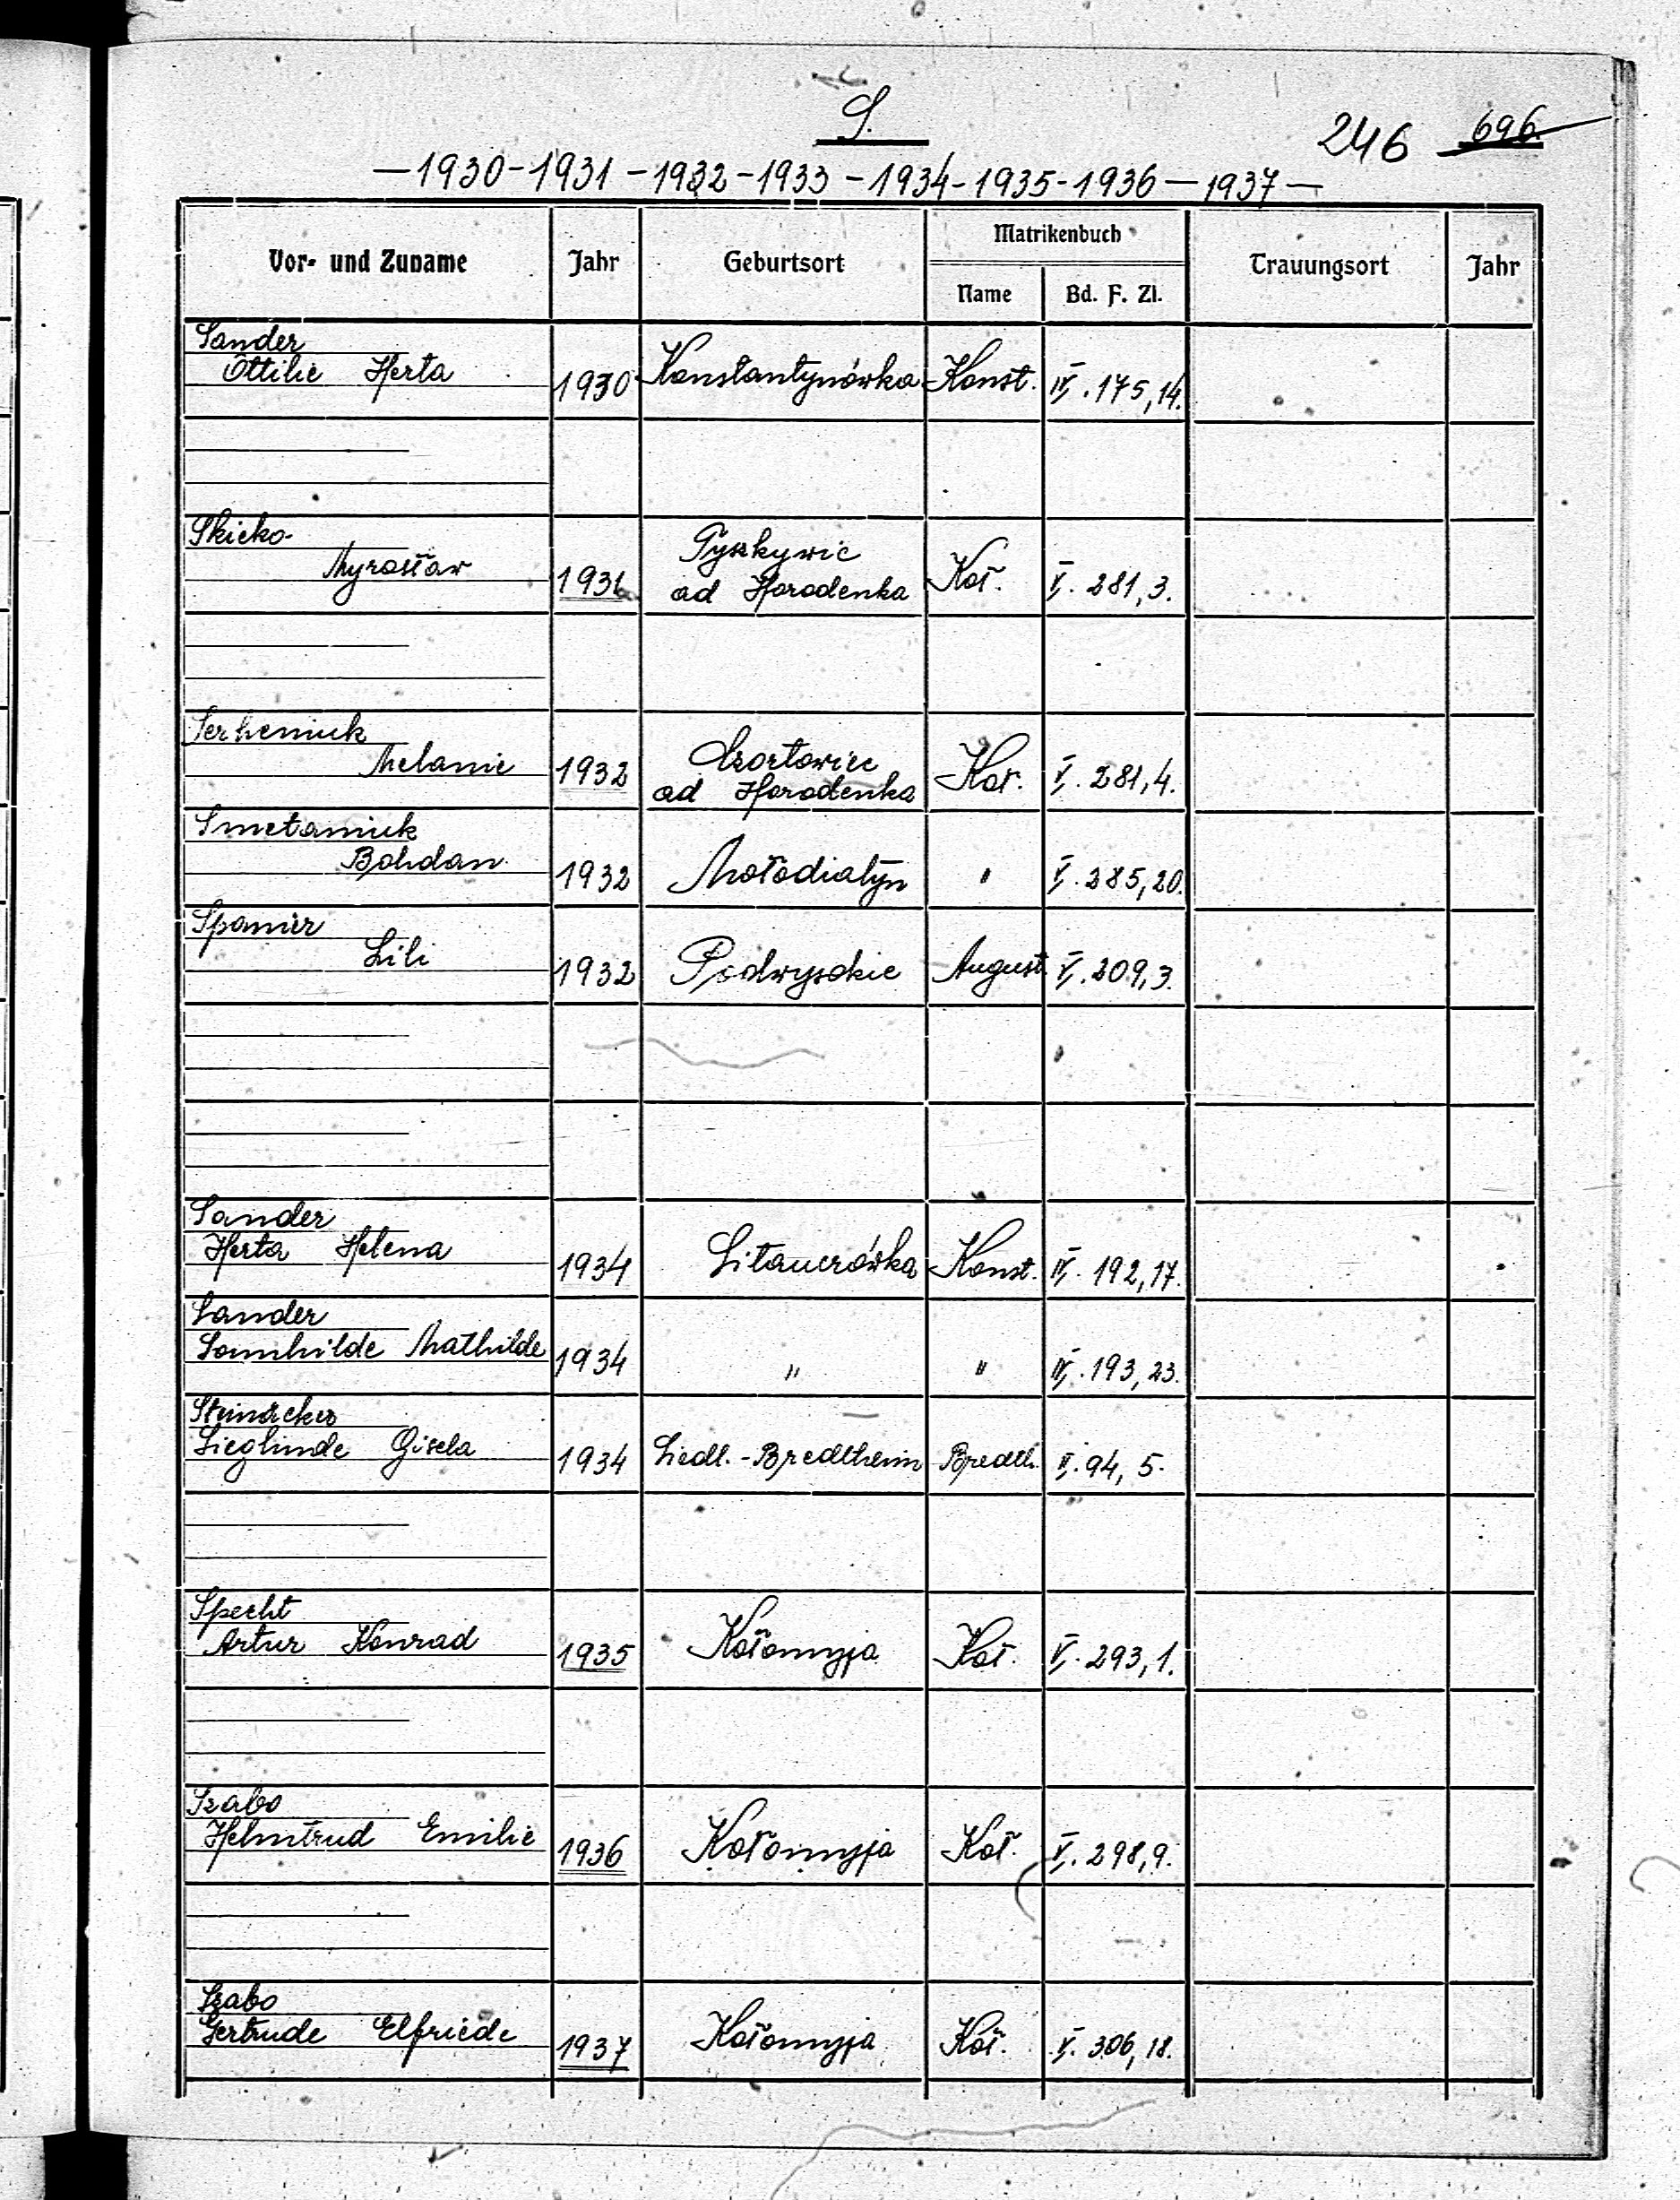 S.
246 696.
—1930-1931-1932-1933-1934-1935-1936—1937—
Vor- und Zuname Jahr Geburtsort Matrikenbuch Trauungsort Jahr
Name Bd. F. Zl.
Sander
Ottilie Herta 1930 Konstantynówka Konst. IV. 175,14.
Skicko
Myrosław 1931 ad Horodenka Koł. V. 281,3.
Serheniuk
Melanie 1932 Czortowiec
ad Horodenka Koł. V. 281,4.
Smetaniuk
Bohdan 1932 Mołodiatyn " V. 285,20.
Spanier
Lili 1932 Podwysokie August. V. 209,3.
Sander
Herta Helena 1934 Sitauerówka Konst. IV. 192,17.
Sander
Sonnhilde Mathilde 1934 " " IV. 193,23.
Steinäcker
Sieglinde Gisela 1934 Siedl.-Bredtheim Bredth. II. 94, 5.
Specht
Artur Konrad 1935 Kołomyja Koł. V. 293,1.
Szabo
Helmtrud Emilie 1936 Kołomyja Koł. V. 298,9.
Szabo
Gertrude Elfriede 1937 Kołomyja Koł. V. 306,18.